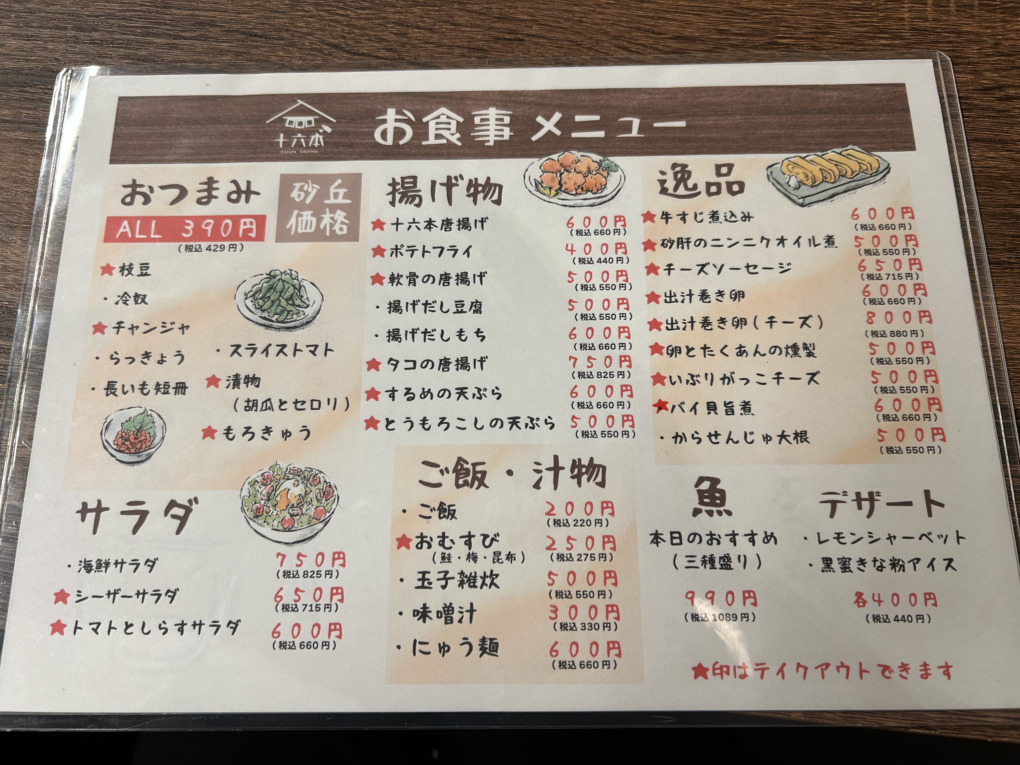 十六本
お食事 メニュー
おつまみ
砂丘
価格
ALL 390円
(税込 429円)
★枝豆
・冷奴
★チャンジャ
・らっきょう
・長いも短冊
・スライストマト
★漬物
(胡瓜とセロリ)
★もろきゅう
揚げ物
★十六本唐揚げ 600円
(税込 660円)
★ポテトフライ 400円
(税込 440円)
★軟骨の唐揚げ 500円
(税込 550円)
・揚げだし豆腐 500円
(税込 550円)
・揚げだしもち 600円
(税込 660円)
★タコの唐揚げ 750円
(税込 825円)
★するめの天ぷら 600円
(税込 660円)
★とうもろこしの天ぷら 500円
(税込 550円)
逸品
★牛すじ煮込み 600円
(税込 660円)
★砂肝のニンニクオイル煮 500円
(税込 550円)
★チーズソーセージ 650円
(税込 715円)
★出汁巻き卵 600円
(税込 660円)
★出汁巻き卵(チーズ) 800円
(税込 880円)
★卵とたくあんの燻製 500円
(税込 550円)
★いぶりがっこチーズ 500円
(税込 550円)
★バイ貝旨煮 600円
(税込 660円)
・からせんじゅ大根 500円
(税込 550円)
サラダ
・海鮮サラダ 750円
(税込 825円)
★シーザーサラダ 650円
(税込 715円)
★トマトとしらすサラダ 600円
(税込 660円)
ご飯・汁物
・ご飯 200円
(税込 220円)
★おむすび 250円
(鮭・梅・昆布) (税込 275円)
・玉子雑炊 500円
(税込 550円)
・味噌汁 300円
(税込 330円)
・にゅう麺 600円
(税込 660円)
魚
本日のおすすめ
(三種盛り)
990円
(税込 1089円)
デザート
・レモンシャーベット
・黒蜜きな粉アイス
各400円
(税込 440円)
★印はテイクアウトできます